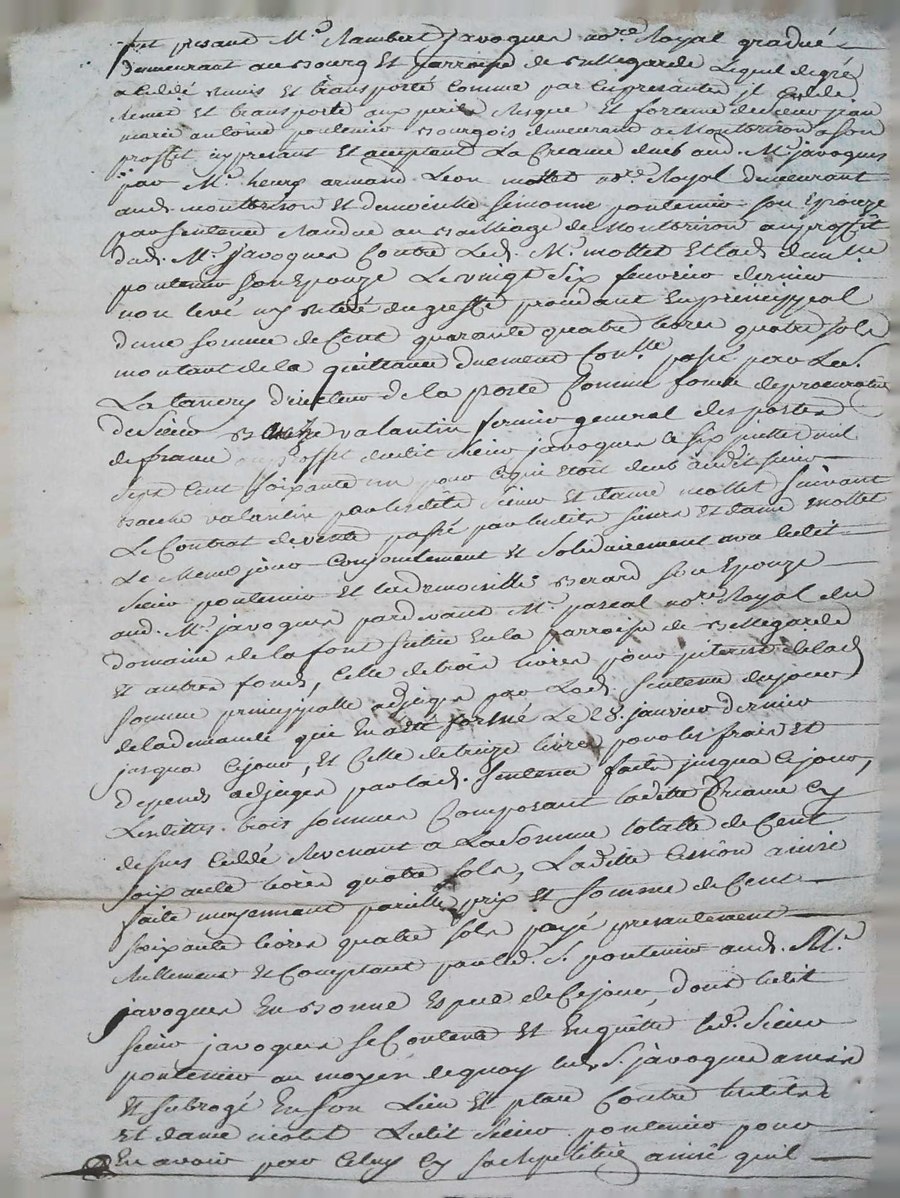 fut presant Me Rambert javogues nore Royal gradué
demeurant au Bourg Et parroisse de Bellegarde Lequel de gré
a Ceddé Remis Et transporté Comme par Ces presantes il Cedde
Remet Et transporte aux perils Risque Et fortune de sieur jean
marie antoine pontenier Bourgois demeurant a Montbrison a son
proffit icy presant Et aceptant La Creance dueb aud. Me javogues
par Me henry armand Leon mottet nore Royal demeurant
aud. montbrison Et demoiselle simonne pontenier son Epouze
par sentence Randue au Bailliage de Montbrison au proffit
dud. Me javogues Contre Led. Me mottet Et lad. damlle
pontenier son Epouze Le vingt six feuvrier dernier
non levé ny Retiré du greffe proedant En princippal
dune somme de Cent quarante quatre livres quatre sols
montant de la quittance duement Conlle passé par Le s.
La tanery directeur de la poste Comme fondé de procuration
de sieur valantin fermier general des postes
de france au proffit dudit sieur javogues Le six juillet mil
sept Cent soixante un pour Ce qui Etoit dueb audit sieur
valantin par lesdits sieur Et dame mottet suivant
Le Contrat de vente passé par lesdits sieur Et dame mottet
Le Meme jour Conjointement Et solidairement avec ledit
sieur pontenier Et la demoiselle Berard son Epouze
aud. Me javogues pardevant Me pascal nore Royal du
domaine de la font situé En la parroisse de Bellegarde
Et autres fonds, Celle de trois livres pour jnterest de lad.
somme princippalle adjugés par Lad. sentence du jour
de la demande qui En a été formé Le 28. janvier dernier
jusqua Cejour, Et Celle de treize livres pour les frais Et
depends adjugés par lad. sentence faits jusqua Cejour,
Lesdittes trois sommes Composant ladite Creance Cy
dessus Ceddé Revenant a La somme totalle de Cent
soixante livres quatre sols, Ladite Cession ainsi
faite moyennant pareille prix Et somme de Cent
soixante livres quatre sols payé presantement
Reellement Et Comptant par led. s. pontenier aud. Me
javogues En Bonne Espece de Cejour, dont ledit
sieur javogues se Contente Et En quitte led. sieur
pontenier au moyen de quoy led. s. javogues a mis
Et subrogé En son Lieu Et place Contre lesdits
Et dame mottet Ledit sieur pontenier pour
En avoir par Celuy Cy sa Repetition ainsi quil